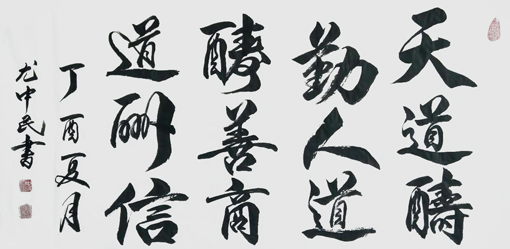 天道醻
勤人道
醻善商
道酬信
丁酉夏月
尤中民書